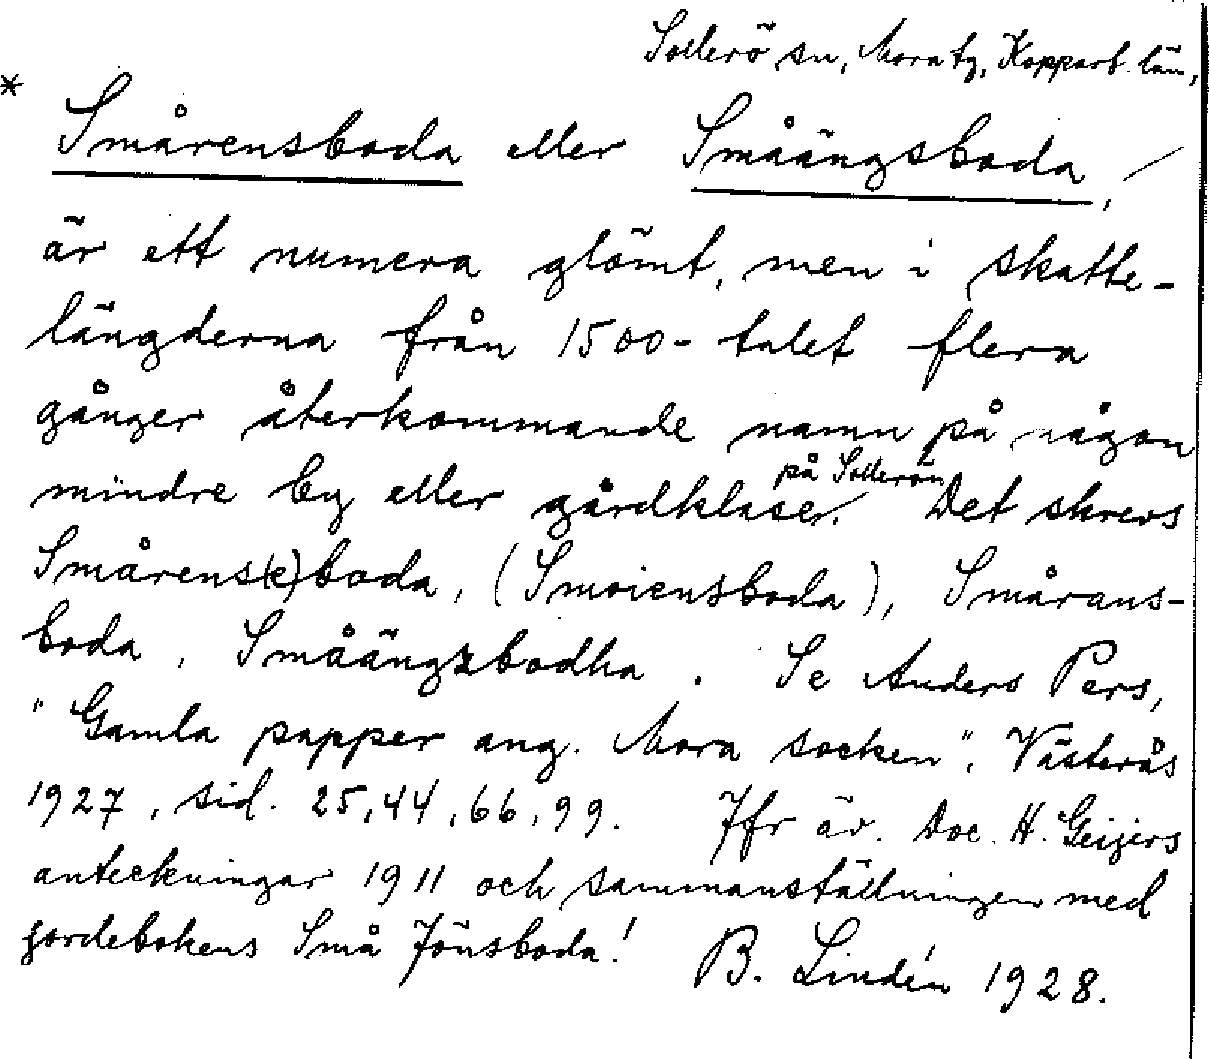 Sollerö sn, Mora tg, Kopparb. län,
* Smårensboda eller Småängsboda,
är ett numera glömt, men i skatte-
längderna från 1500-talet flera
gånger återkommande namn på någon
mindre by eller gårdklaser på Sollerön. Det skrevs
Smårens(e)boda, (Smoiensboda), Smårans-
boda, Småängzbodha. Se Anders Pers,
"Gamla papper ang. Mora socken", Västerås
1927, sid. 25, 44, 66, 99. Jfr äv. Doc. H. Geijers
anteckningar 1911 och sammanställningen med
jordebokens Små Jönsboda! B. Lindén 1928.